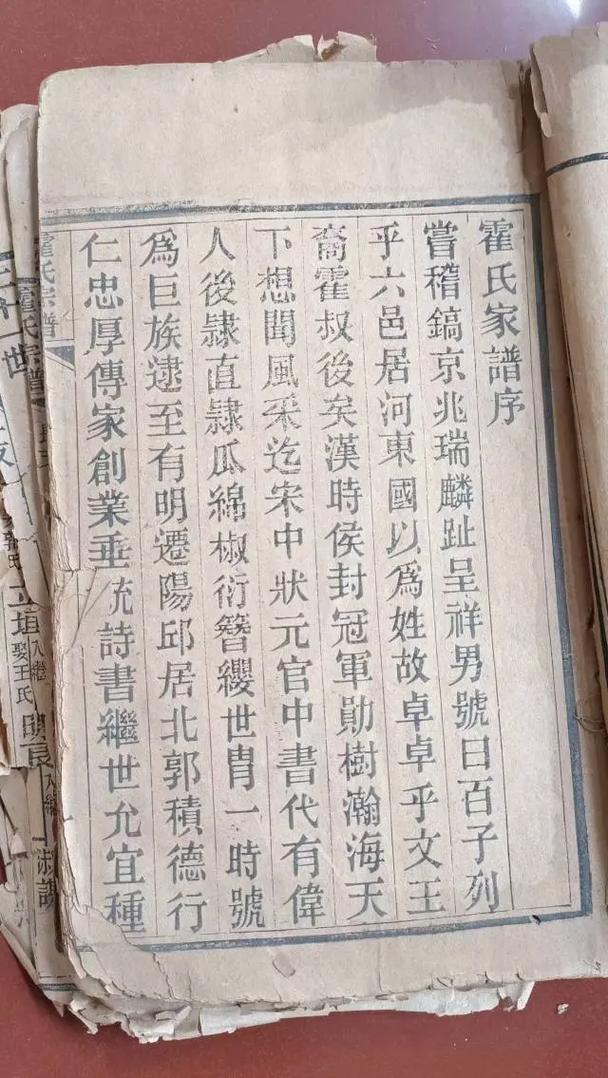 霍氏家譜序
嘗稽鎬京兆瑞麟趾呈祥男號曰百子列
乎六邑居河東國以為姓故卓卓乎文王
裔霍叔後矣漢時侯封冠軍勛樹瀚海天
下想聞風采迄宋中狀元官中書代有偉
人後隸直隸瓜綿椒衍簪纓世胄一時號
為巨族逮至有明遷陽邱居北郭積德行
仁忠厚傳家創業垂統詩書繼世允宜種
霍氏宗譜
霍氏宗譜
世
立垣
入繼
娶王氏